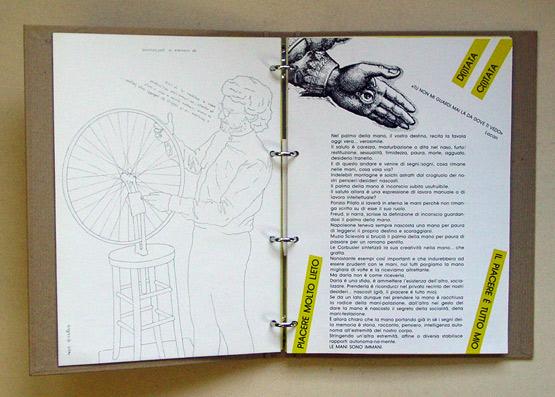 DI(TA)TA
CI(TA)TA
«TU NON MI GUARDI MAI LÀ DA DOVE TI VEDO»
Lacan
Nel palmo della mano, il vostro destino, recita la favola
oggi vera... verosimile.
Il saluto è carezza, masturbazione o dita nel naso, furto/
restituzione, sessualità, timidezza, paura, morte, agguato,
desiderio/tranello.
E di questo andare e venire di segni/sogni, cosa rimane
nelle mani, cosa vola via?
Indelebili montagne e solchi astratti dal crogiuolo dei no-
stri pensieri/desideri nascosti.
Il palma della mano è inconscio subito usufruibile.
Il saluto allora è una espressione di lavoro manuale o di
lavoro intellettuale?
Ponzio Pilato si laverà in eterno le mani perché non riman-
ga scritto su di esse il suo ruolo.
Freud, si narra, scrisse la definizione di inconscio guardan-
dosi il palmo della mano.
Napoleone teneva sempre nascosta una mano per paura
di leggervi il proprio destino e scoraggiarsi.
Muzio Scevola si bruciò il palmo della mano per paura di
passare per un romano pentito.
Le Corbusier sintetizzò la sua creatività nella mano... che
grafia.
Nonostante esempi così importanti e che indurrebbero ad
essere prudenti con le mani, noi tutti porgiamo la mano
migliaia di volte e la riceviamo altrettante.
Ma darla non è come riceverla.
Darla è una sfida, è ammettere l'esistenza dell'altro, socia-
lizzare. Prenderla è ricondurci nel privato recinto dei nostri
desideri... nascosti (già, il piacere è tutto mio).
Se da un lato dunque nel prendere la mano è racchiusa
la radice della mani-polazione, dall'altro nel gesto del
dare la mano è nascosto il segreto della socialità, della
mani-festazione.
È allora chiaro che la mano portando già in sé i segni del-
la memoria è storia, racconto, pensiero, intelligenza auto-
noma all'estremità del nostro corpo.
Stringendo un'altra estremità, affine o diversa stabilisce
rapporti autonoma-na-mente.
LE MANI SONO IMMANI.
PIACERE MOLTO LIETO
IL PIACERE È TUTTO MIO